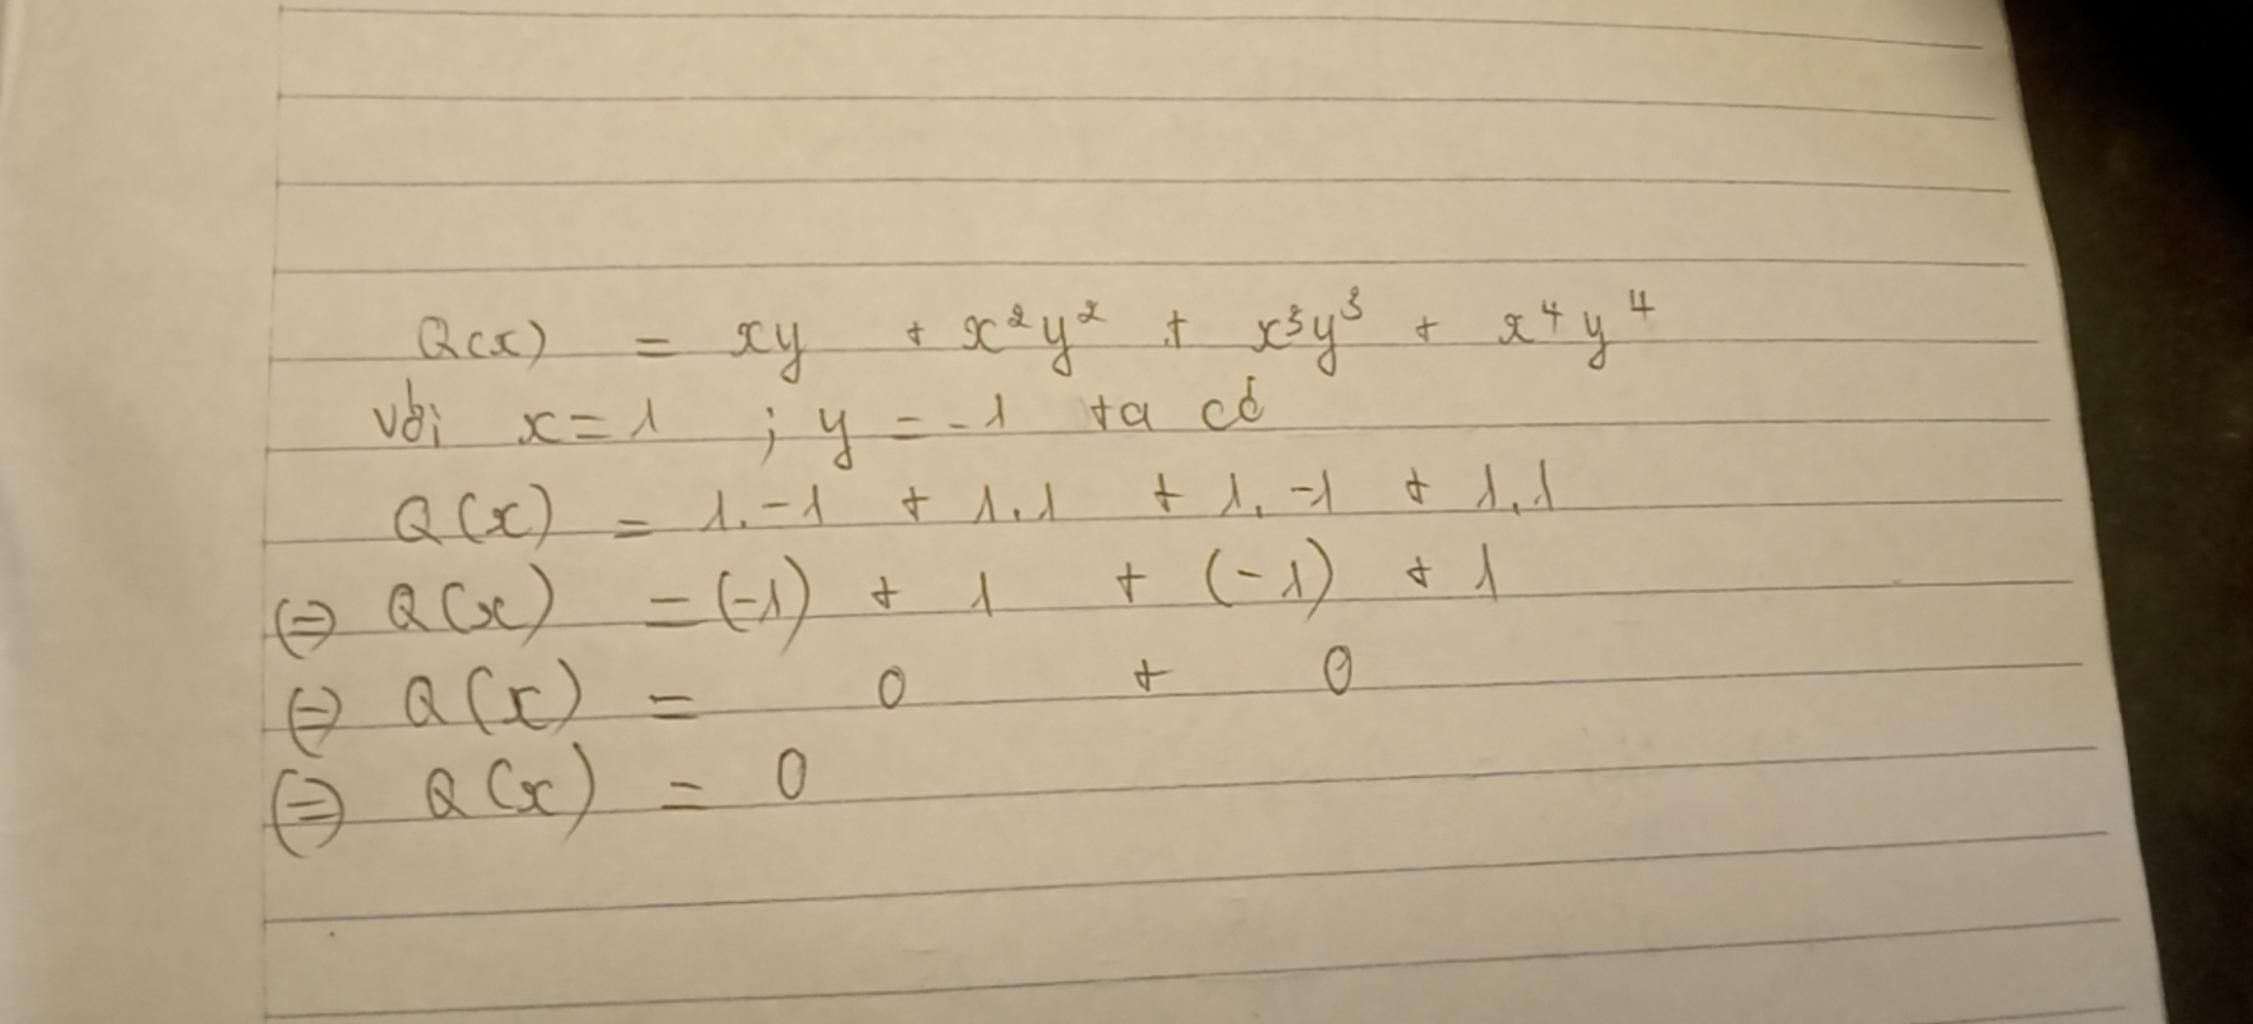 Q(x) = xy + x²y² + x³y³ + x⁴y⁴
với x = 1 ; y = -1 ta có
Q(x) = 1.-1 + 1.1 + 1.-1 + 1.1
(=) Q(x) = (-1) + 1 + (-1) + 1
(=) Q(x) = 0 + 0
(=) Q(x) = 0